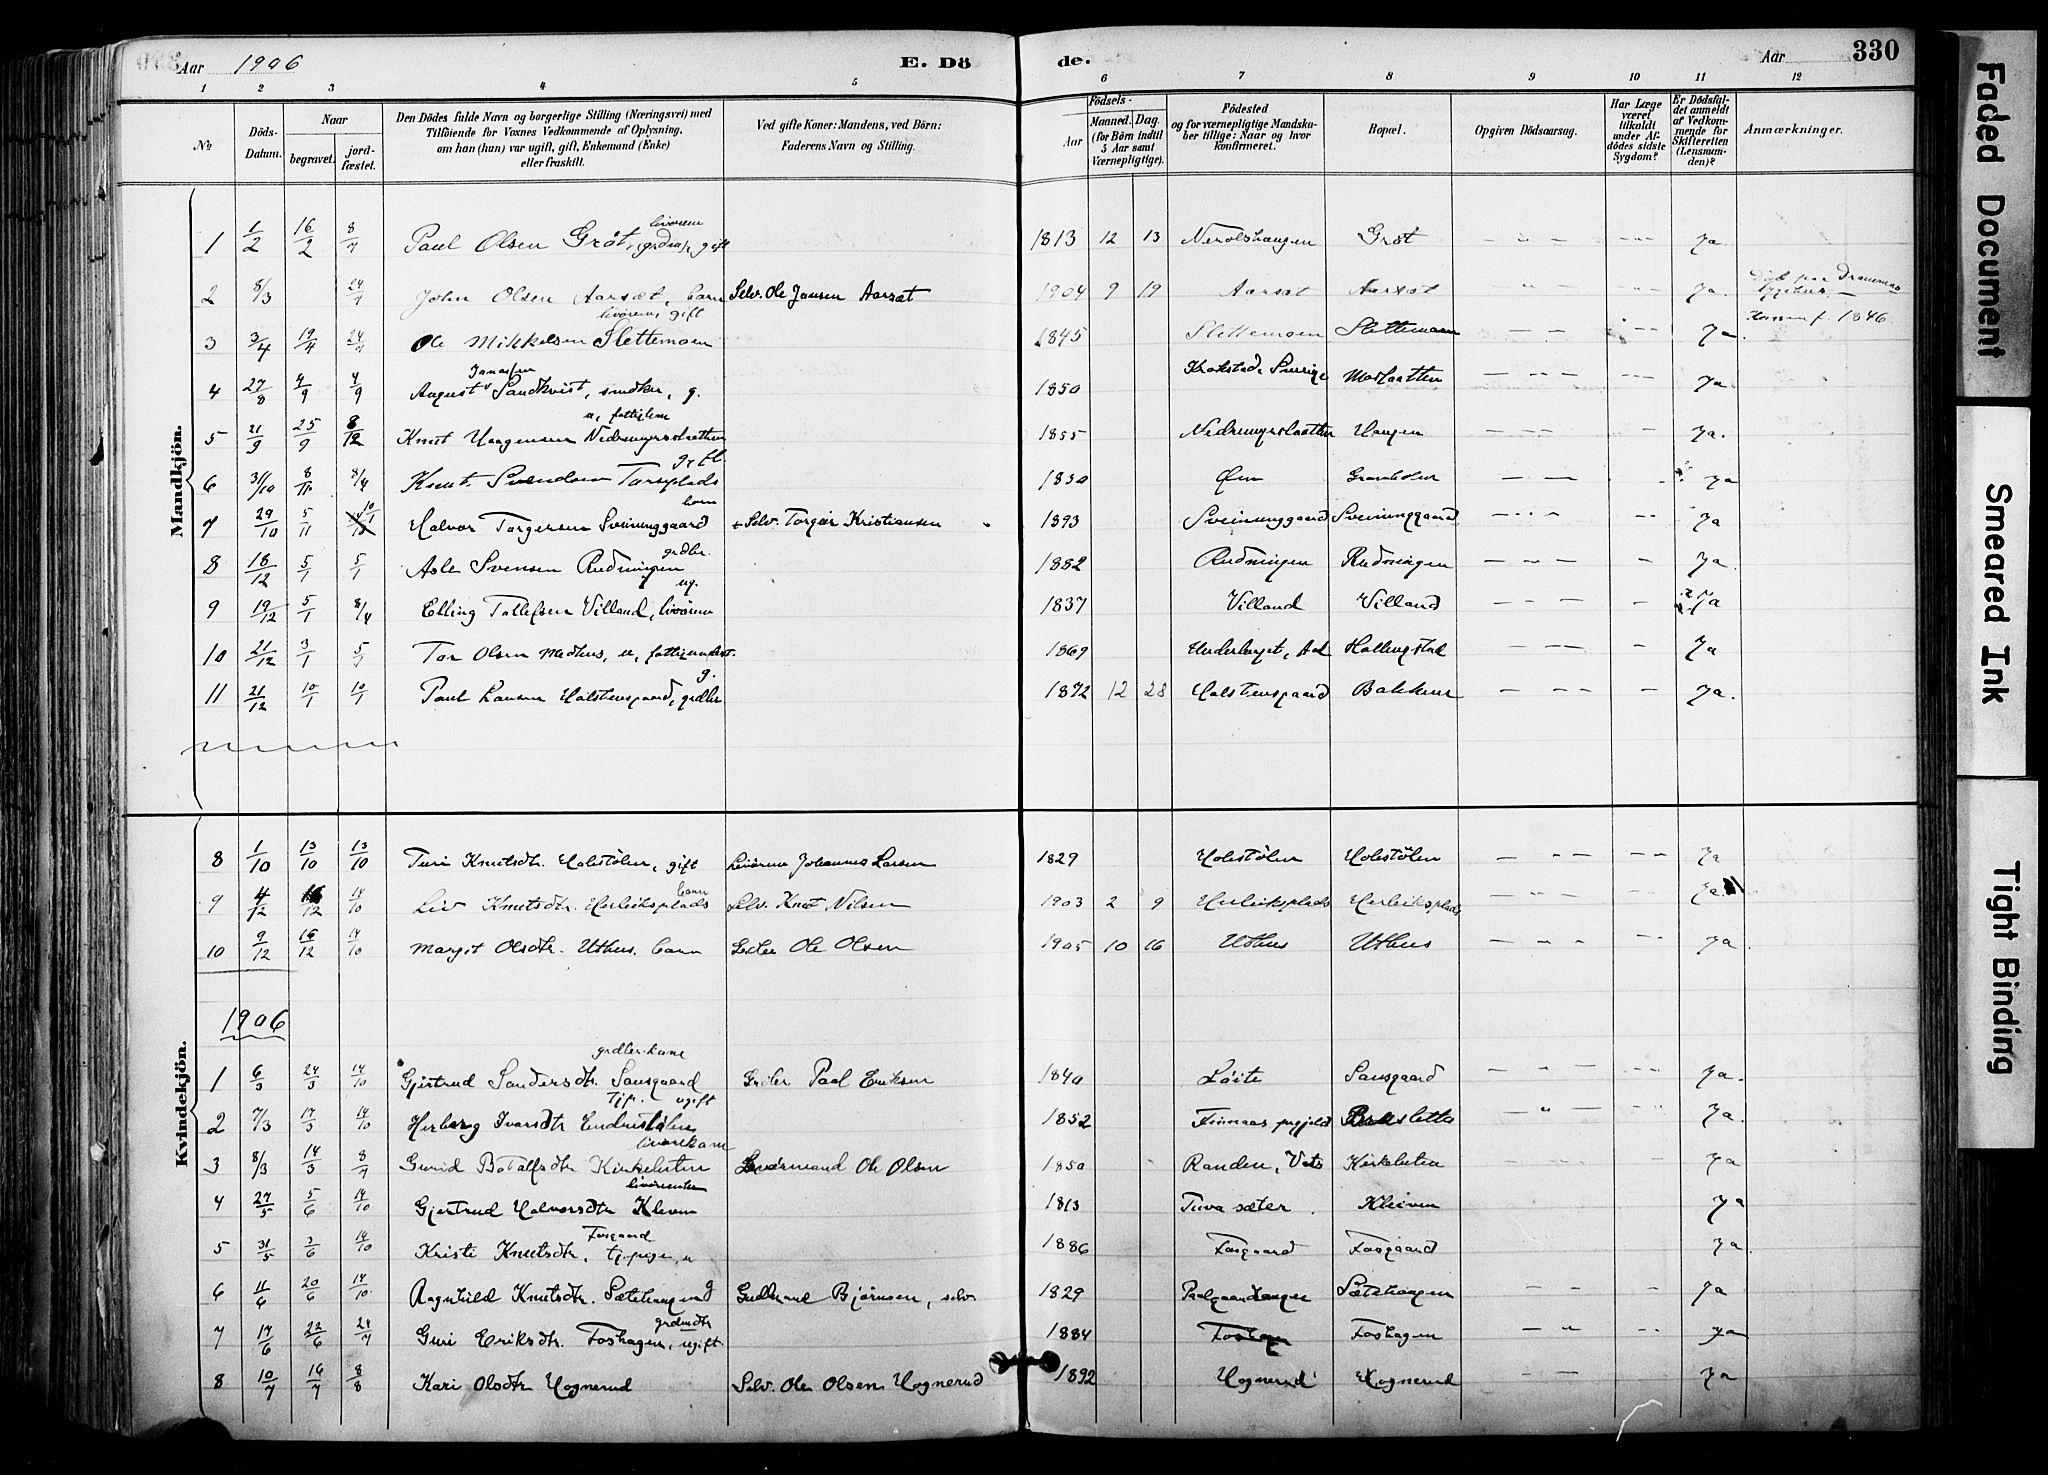 Aar 1906
E. Döde.
Aar
330
1 2 3 4 5 6 7 8 9 10 11 12
No
Döds-Datum.
Naar
begravet.
jordfæstet.
Den Dödes fulde Navn og borgerlige Stilling (Næringsvei) med
Tilföiende for Voxnes Vedkommende af Oplysning,
om han (hun) var ugift, gift, Enkemand (Enke)
eller fraskilt.
Ved gifte Koner: Mandens, ved Börn:
Faderens Navn og Stilling.
Födsels-
Aar
Maaned. Dag.
(for Börn indtil
5 Aar samt
Værnepligtige).
Födested
og for værnepligtige Mandska-
ber tillige: Naar og hvor
konfirmeret.
Bopæl.
Opgiven Dödsaarsag.
Har Læge
været
tilkaldt
under Af-
dödes sidste
Sygdom?
Er Dödsfal-
det anmeldt
af Vedkom-
mende for
Skifteretten
(Lensman-
den)?
Anmærkninger.
Mandkjön.
1 1/2 16/2 8/7 Paul Olsen Gröt, gift 1813 12 13 Gröt — " — — " — Ja
2 8/3 24/7 John Olsen Aarsæt, barn Selv. Ole Jansen Aarsæt 1904 9 19 Aarsæt Aarsæt — " — — " — Ja. Död paa Drammens sygehus.
livörens gift
3 3/4 19/4 24/7 Ole Mikkelsen Slettemoen 1845 Slettemoen Slettemoen — " — — " — Ja. 1846
4 27/8 4/9 4/9 August Sandkvist, snedker, g. 1850 Krokstad, Sverige — " — — " — Ja
5 21/9 25/9 8/12 Knut Haagensen 1855 Haugen — " — — " — Ja.
6 31/10 8/11 8/4 Knut Svendsen Torsplads 1850 — — — Ja
barn
7 29/10 5/11 10/1 Halvor Torgersen Sveinunggaard Selv. Torgeir Kristiansen 1893 Sveinunggaard Sveinunggaard — " — — Ja
grdbr.
8 18/12 5/1 5/1 Asle Svensen Rudningen 1882 Rudningen Rudningen — " — — Ja.
ug.
9 19/12 5/1 8/4 Elling Tollefsen Villand, 1837 Villand Villand — " — — Ja
10 21/12 3/1 5/1 Tor Olsen Medhus, u, 1869 Underberget, Aal Hallingstad — — — — Ja
g.
11 21/12 10/1 10/1 Paul Larsen Holstensgaard, grdbr 1872 12 28 Holstensgaard Bakken — — — — Ja.
Kvindekjön.
8 1/10 13/10 13/10 Turi Knutsdtr. Holestölen, gift Livörm Johannes Larsen 1829 Holestölen Holestölen — " — — " — Ja
barn
9 4/12 16/12 14/10 Liv Knutsdtr. Herleiksplads Selv. Knut Nilsen 1903 2 9 Herleiksplads Herleiksplads — " — — " — Ja.
10 9/12 16/12 14/10 Margit Olsdtr. Uthus, barn Ole Olsen 1905 10 16 Uthus Uthus — " — — " — Ja.
1906
grdbr.kone
1 6/3 24/3 14/10 Gjertrud Sandersdtr. Sansgaard Grdbr Paal Eriksen 1840 Löite Sansgaard — " — — " — Ja.
tjp. ugift
2 7/3 17/3 14/10 Herborg Ivarsdtr Endrestölen 1852 Finnaas prgjeld Brusletto — " — — " — Ja.
3 8/3 14/3 8/7 Gunid Botolfsdtr Kirkelien Livörmand Ole Olsen 1850 Randen, Vats — " — — " — Ja
4 27/5 5/6 14/10 Gjertrud Halvorsdtr Kleven 1813 Tuva sæter Kleiven Ja
Fosgaard
5 31/5 3/6 14/10 Kristi Knutsdtr, tj.pige, u 1886 Fosgaard Fosgaard Ja.
6 11/6 20/6 14/10 Ragnhild Knutsdtr. Sætehaugen g Gudbrand Björnsen, selv. 1829 Paalgaardhaugen Sætehaugen — — — — Ja
7 17/6 22/6 24/7 Guri Eriksdtr. Foshagen, ugift. 1884 Foshag Foshagen — " — — Ja
8 10/7 16/7 8/8 Kari Olsdtr Hognerud Selv. Ole Olsen Hognerud 1892 Hognerud Hognerud — — — — Ja
Faded Document
Smeared Ink
Tight Binding